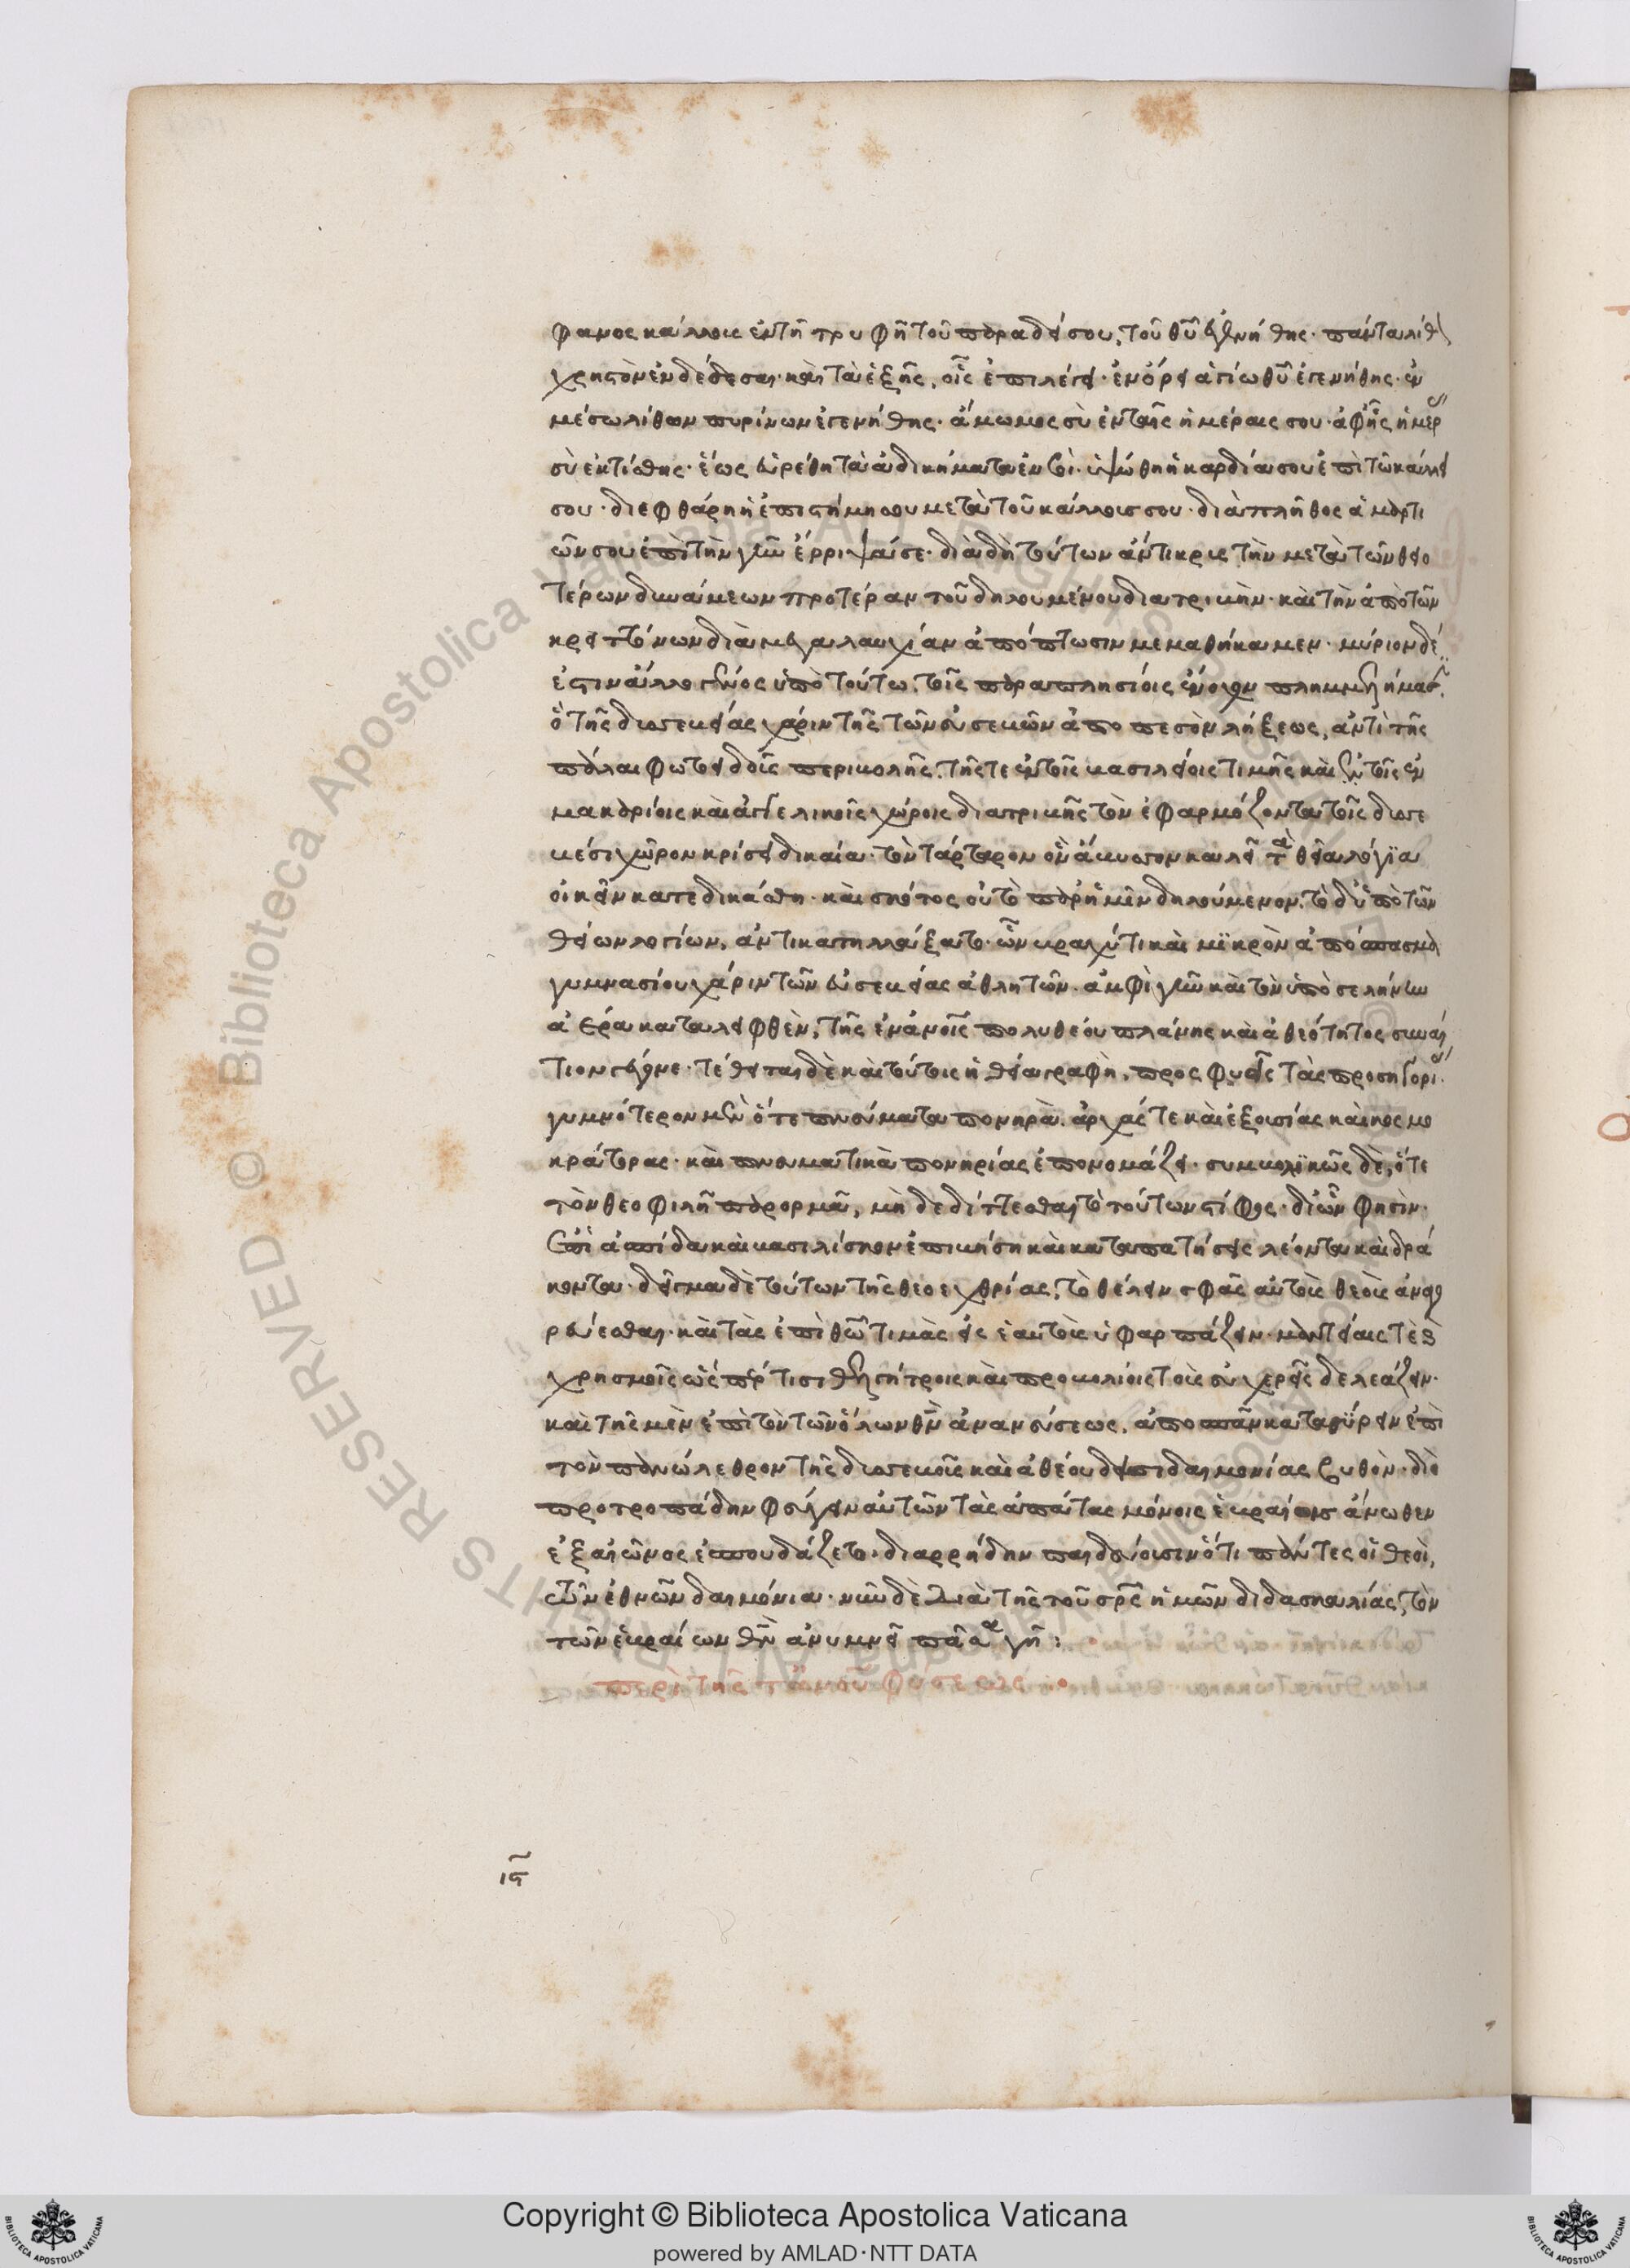 φανος κάλλους ἐν τῆ τρυφῆ τοῦ παραδείσου, τοῦ θυ ἐγενήθης· πάντα λίθ
χρηστὸν ἐνδέδεσαι· καὶ τὰ ἑξῆς, οἷς ἐπιλέγει· ἐν ὄρει ἁγίω θυ ἐγενήθης· ἐν
μέσω λίθων πυρίνων ἐγενήθης· ἄμωμος σὺ ἐν ταῖς ἡμέραις σου· ἀφ' ἧς ἡμέρας
σὺ ἐκτίσθης· ἕως εὑρέθη τὰ ἀδικήματα ἐν σοὶ· ὑψώθη ἡ καρδία σου ἐπὶ τῶ κάλλει
σου· διεφθάρη ἡ ἐπιστήμη σου μετὰ τοῦ κάλλους σου· διὰ πλῆθος ἁμαρτι
ῶν σου ἐπὶ τὴν γῆν ἔρριψά σε· διὰ δὴ τούτων ἄντικρυς τὴν μετὰ τῶν θειο
τέρων δυνάμεων προτέραν τοῦ δηλουμένου διατριβὴν· καὶ τὴν ἀπὸ τῶν
κρειττόνων διὰ μεγαλαυχίαν ἀπόπτωσιν μεμαθήκαμεν· μύριον δέ
ἐστιν ἄλλο γένος ὑπὸ τούτω, τοῖς παραπλησίοις ἔνοχον πλημμελήμασιν
ὃ τῆς δυσσεβείας χάριν τῆς τῶν εὐσεβῶν ἀποπεσὸν λήξεως, ἀντὶ τῆς
πάλαι φωτοειδοῖς περιβολῆς, τῆς τε ἐν τοῖς βασιλείοις τιμῆς καὶ τῆς ἐν τοῖς
μακαρίοις καὶ ἀγγελικοῖς χώροις διατριβῆς τὸν ἐφαρμόζοντα τοῖς δυσσε
βέσι χῶρον κρίσει δικαία· τὸν τάρταρον ὃν ἄβυσσον καλεῖ τὰ θεῖα λόγια
οἰκεῖν κατεδικάσθη· καὶ σκότος οὐ τὸ παρ' ἡμῖν δηλούμενον, τὸ δ' ὑπὸ τῶν
θείων λογίων, ἀντικατηλλάξατο· ὧν βραχύ τι καὶ μϊκρὸν ἀπόσπασμα
γυμνασίου χάριν τῶν εὐσεβείας ἀθλητῶν· ἀμφὶ γῆν καὶ τὸν ὑπὸ σελήνην
ἀέρα καταλειφθὲν, τῆς ἐν ἀνοις πολυθέου πλάνης καὶ ἀθεότητος συναί
τιον γέγονε· τέθειται δὲ καὶ τούτοις ἡ θεία γραφὴ, προσφυεῖς τὰς προσηγορίας·
γυμνότερον μὲν ὅτε πνεύματα πονηρὰ, ἀρχάς τε καὶ ἐξουσίας καὶ κοσμο
κράτορας· καὶ πνευματικὰ πονηρίας ἐπονομάζει· συμβολϊκῶς δὲ, ὅτε
τὸν θεοφιλῆ παρορμᾶ, μὴ δεδίττεσθαι τὸ τούτων στίφος· δι' ὧν φησὶν·
ἐπὶ ἀσπίδα καὶ βασιλίσκον ἐπιβήση καὶ καταπατήσεις λέοντα καὶ δρά
κοντα· δεῖγμα δὲ τούτων τῆς θεοεχθρίας, τὸ θέλειν σφᾶς αὐτοὺς θεοὺς ἀναγο
ρεύεσθαι· καὶ τὰς ἐπὶ θω τιμὰς εἰς ἑαυτοὺς ὑφαρπάζειν· μαντείαις τὲ καὶ
χρησμοῖς ὥσπερ τισὶ θελγήτροις καὶ προβολίοις τοὺς εὐχερεῖς δελεάζειν·
καὶ τῆς μὲν ἐπὶ τὸν τῶν ὅλων θν ἀνανεύσεως, ἀποσπᾶν κατασύρειν ἐπὶ
τὸν πανώλεθρον τῆς δυσσεβοῦς καὶ ἀθέου δεισιδαιμονίας βυθὸν· διὸ
προτροπάδην φεύγειν αὐτῶν τὰς ἀπάτας μόνοις ἑβραίοις ἄνωθεν
ἐξ αἰῶνος ἐσπουδάζετο· διαρρήδην παιδεύουσιν ὅτι πάντες οἱ θεοὶ,
τῶν ἐθνῶν δαιμόνια· νῦν δὲ διὰ τῆς τοῦ σρς ἡμῶν διδασκαλίας, τὸν
τῶν ἑβραίων θν ἀνυμνεῖ πᾶσα γῆ:
περὶ τῆς τἀνοῦ φύσεως:
ιϛ
© Biblioteca Apostolica Vaticana ALL RIGHTS RESERVED
Copyright © Biblioteca Apostolica Vaticana
powered by AMLAD·NTT DATA
BIBLIOTECA APOSTOLICA VATICANA
BIBLIOTECA APOSTOLICA VATICANA